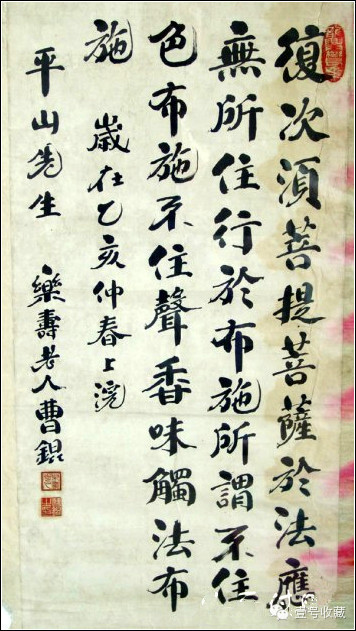 復次須菩提菩薩於法應
無所住行於布施所謂不住
色布施不住聲香味觸法布
施 歲在乙亥仲春上浣
平山先生 樂壽老人曹錕
壹号收藏